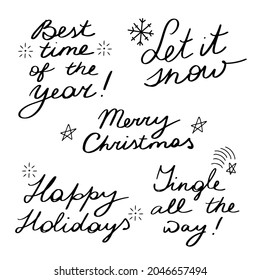 Best
time
of the
year!
Let it
snow
Merry
Christmas
Happy
Holidays
Jingle
all the
way!
shutterstock.com · 2046657494